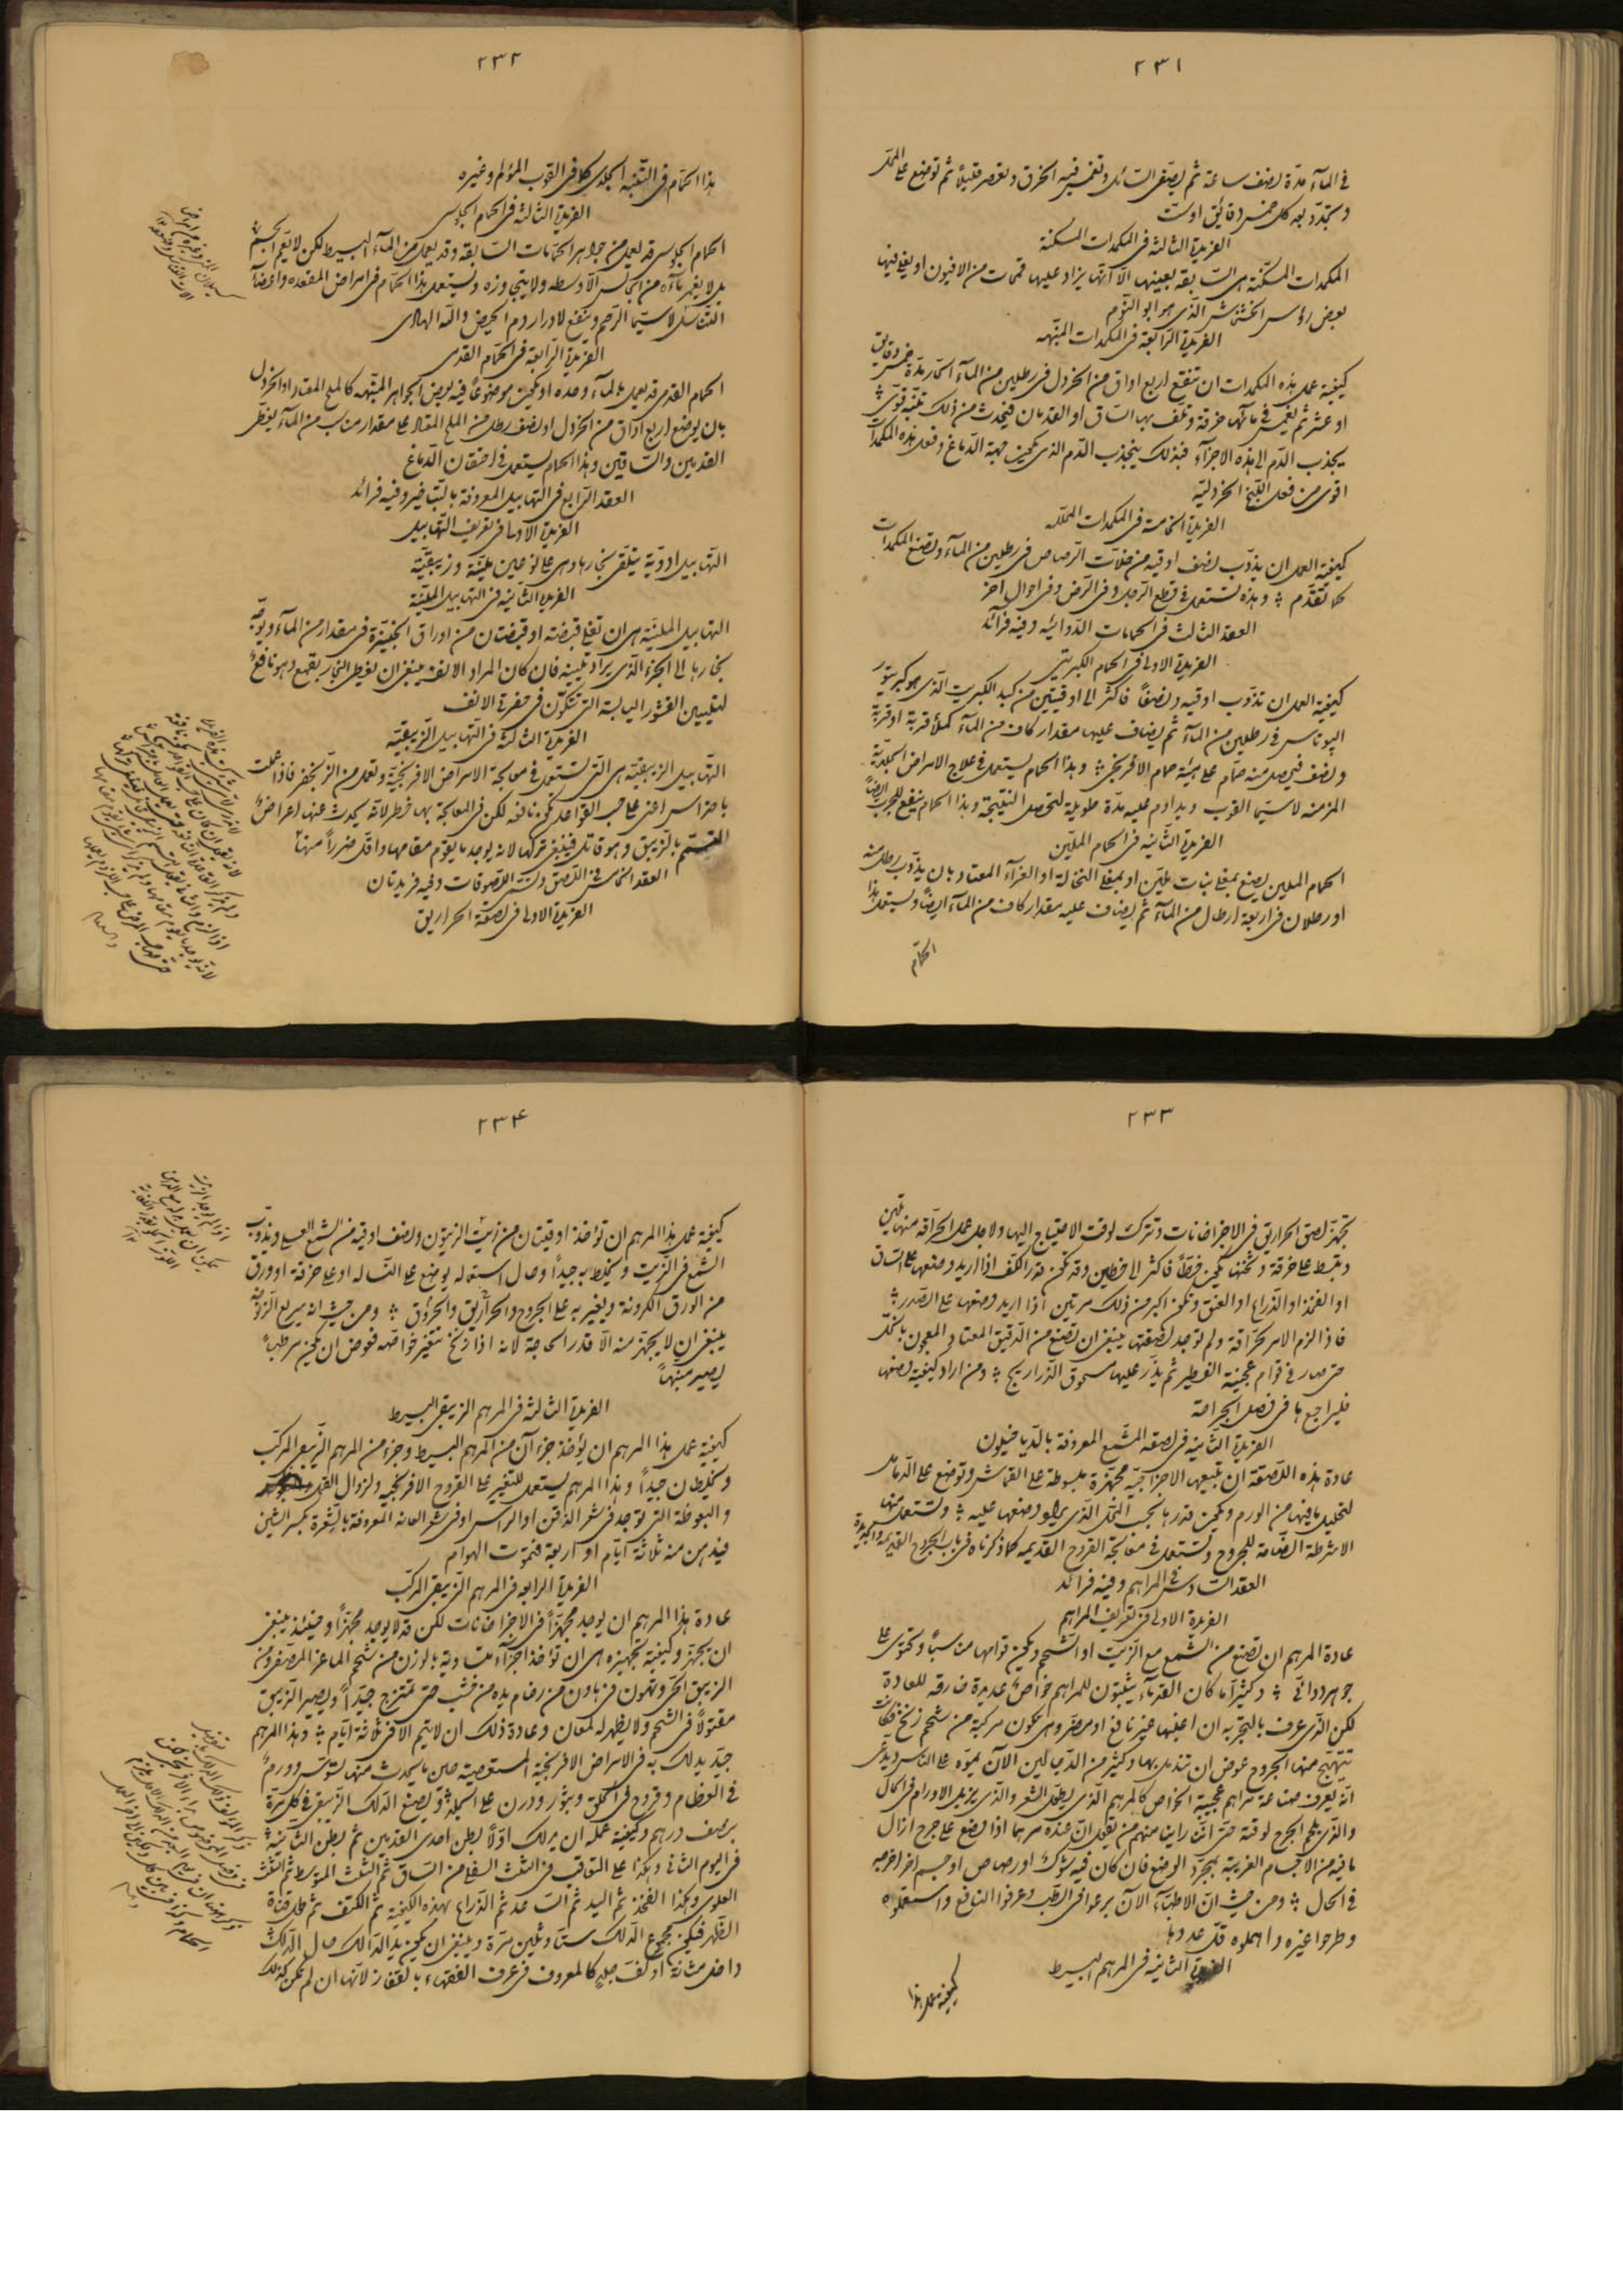 ٢٣١
في المآء مدّة نصف ساعة ثم يصفى السّائل وتغمس فيه الخرق وتعصر قليلًا ثم توضع على المحل
وتجدد بعد كل خمس دقائق اوست
الفريدة الثالثة في المكمدات المسكنة
المكمدات المسكّنة هى السّابقة بعينها الّا انّها يزاد عليها قمحات من الافيون او يغلى فيها
بعض رؤس الخشخاش الذى هو ابو النّوم
الفريدة الرّابعة في المكمدات المنبّهه
كيفية عمل هذه المكمدات ان تنقع اربع اواق من الخردل في رطلين من المآء الحار مدّة خمس دقايق
او عشر ثم يغمس في مائها خرقة وتلف بها السّاق او القدمان فيحدث من ذلك تنبّه قوىّ
يجذب الدّم الى هذه الاجزآء فبذلك ينجذب الدّم الذى يكون جهة الدّماغ وفعل هذه المكمدات
اقوى من فعل اللّبخ الخردليّه
الفريدة الخامسة في المكمدات المحلّله
كيفيّة العمل ان يذوّب نصف اوقيه من خلّات الرّصاص في رطلين من المآء وتصنع المكمدات
كما تقدّم وهذه تستعمل في قطع الرّجل وفي الرّض وفي احوال اخر
العقد الثالث في الحمامات الدّوائيّه وفيه فرآئد
الفريدة الاولى في الحمام الكبريتى
كيفية العمل ان تذوّب اوقيه ونصفًا فاكثر الى اوقيتين من كبد الكبريت الذى هو كبريتور
البوتاس في رطلين من المآء ثم يضاف عليها مقدار كاف من المآء كملأ قربة او قربة
ونصف فيحصل منه حمّام على هيئة حمام الأفرنجى وهذا الحمام يستعمل في علاج الامراض الجلديّة
المزمنه لاسيّما القوب ويداوم عليه مدّة طويلة لتحصل النّتيجة وهذا الحمام ينفع للجرب ايضًا
الفريدة الثّانية في الحمام الملّين
الحمام الملين يصنع بمغلى نبات ملّين او بمغلى النخالة او الغرآء المعتاد بان يذوّب رطل منه
او رطلان في اربعة ارطال من المآء ثم يضاف عليه مقدار كاف من المآء ايضًا ويستعمل هذا
الحمّام
٢٣٢
هذا الحمّام في التّنبّه الجلدى كما في القوب المؤلم وغيره
الفريدة الثالثة في الحمام الجلوسى
الحمام الجلوسى قد يعمل من جواهر الحمّامات السّابقة وقد يعمل من المآء البسيط لكن لا يعّم الجسم
بل لا يغمر مآؤه من الجالس الّا وسطه ولا يتجاوزه ويستعمل هذا الحمّام في امراض المقعده واعضآء
التّناسل لاسيّما الرّحم وينفع لادرار دم الحيض والله الهادى
الفريدة الرّابعة في الحمّام القدمى
الحمام القدمى قد يعمل بالمآء وحده او يكون موضوعًا فيه بعض الجواهر المنبّهه كالملح المعتاد او الخردل
بان يوضع اربع اواق من الخردل او نصف رطل من الملح المعتاد على مقدار مناسب من المآء يغطى
القدمين والسّاقين وهذا الحمام يستعمل في احتقان الدّماغ
العقد الرّابع في التهابيل المعروفة بالتّباخير وفيه فرائد
الفريدة الاولى في تعريف التّهابيل
التّهابيل ادويّة يتلقّى بخارها وهى على نوعين مليّنة وزيبقيّة
الفريدة الثانية في التهابيل الملّينة
التهابيل المليّنة هى ان تغلى قبضته او قبضتان من اوراق الخبيّزة في مقدار من المآء ويوجّه
بخارها الى الجزء الّذى يراد تليينه فان كان المراد الانف ينبغى ان يغطى البخار بقمع وهو نافع
لتليين القشور اليابسة التى تتكوّن في حفرة الانف
الفريدة الثالثة في التهابيل الزّيبقيّه
التهابيل الزيبقيّة هى التى تستعمل في معالجة الامراض الافرنجيّة وتعمل من الزّنجفر فاذا عملت
باحتراس اعنى على حسب القواعد تكون نافعه لكن في المعالجة بها خطر لانّه يحدث عنها اعراض
التسمّم بالزيبق وهو قاتل فينبغى تركها لانه يوجد ما يقوم مقامها واقلّ ضررًا منها
العقد الخامس في اللّصق وتسمى اللّصوقات وفيه فريدتان
الفريدة الاولى في لصقة الحراريق
٢٣٣
تجهّز لصق الحراريق في الاجزاخانات وتترك لوقت الاحتياج اليها ولاجل عمل الحرّاقة منها تليّن
وتبسط على خرقة وثخنها يكون خطًّا فاكثر الى خطين وقد تكون قدر الكف اذا اريد وضعها على السّاق
او الفخذ او الذّراع او العنق وتكون اكبر من ذلك مرتين اذا اريد وضعها على الصّدر
فاذا لزم الامر لحرّاقة ولم توجد لصقتها ينبغى ان تصنع من الدّقيق المعتاد المعجون بالخلّ
حتى صار في قوام عجينة الفطير ثم يذّر عليها مسحوق الذّراريح ومن اراد كيفية لصقها
فليراجعها في فصل الجراحة
الفريدة الثانية في لصقة المشّمع المعروفة بالدّياخيلون
عادة هذه اللّصقة ان تبيعها الاجزاجيّه مجهّزة مبسوطة على القماش وتوضع على الدّمامل
لتحليل ما فيها من الورم ويكون قدرها بحسب المحلّ الّذى يراد وضعها عليه وتستعمل منها
الاشرطة الضّامة للجروح وتستعمل في معالجة القروح القديمه كما ذكرناه في باب الجروح القديمه والجديدة
العقد السّادس في المراهم وفيه فرائد
الفريدة الاولى في تعريف المراهم
عادة المرهم ان تصنع من الشّمع مع الزّيت او الشّحم ويكون قوامها مناسبًا وتحتوى على
جوهر دوائى وكثيرًا ما كان القدمآء يثبتون للمراهم خواصّ عديدة خارقه للعادة
لكن الّذى عرف بالتجربه ان اغلبها غير نافع او مضرّ وهى تكون مركبة من شحم زنخ فكانت
تتهيّج منها الجروح عوض ان تندمل بها وكثير من الدّجّالين الآن يموّه على النّاس ويدّعى
انّه يعرف صناعة مراهم عجيبة الخواص كالمرهم الّذى يطوّل الشعر والّذى يزيل الاورام في الحال
والّذى يلحم الجرح لوقته حتّى انّنا راينا منهم من يقول انّ عنده مرهما اذا وضع على جرح ازال
ما فيه من الاجسام الغريبة بمجرّد الوضع فان كان فيه شوك او رصاص او جسم اخر اخرجه
في الحال ومن حيث انّ الاطبّآء الآن برعوا في الطّب وعرفوا النافع واستعملوه
وطرحوا غيره واهملوه قلّ عددها
الفريدة الثانيه في المرهم البسيط
كيفية عمل هذا
٢٣٤
كيفية عمل هذا المرهم ان تؤخذ اوقيتان من زيت الزيتون ونصف اوقيه من الشمع العسلى ويذوّب
الشّمع في الزّيت ويخلط به جيدًا وحال استعماله يوضع على النّساله او على خرقة او ورق
من الورق الكرونة ويغير به على الجروح والحراريق والحروق ومن حيث انه سريع الزنوخه
ينبغى ان لا يجهّز منه الّا قدر الحاجة لانه اذا زنخ تتغير خواصّه فعوض ان يكون مرطبًا
يصير منبّهًا
الفريدة الثالثة في المرهم الزيبقى البسيط
كيفية عمل هذا المرهم ان يؤخذ جزءآن من المرهم البسيط وجزء من المرهم الزّيبقى المركب
ويخلطان جيدًا وهذا المرهم يستعمل للتغيير على القروح الافرنجيه ولزوال القمل
والبعوظة التى توجد فى شعر الذقن او الرأس او فى شعر العانه المعروفة بالشعرة بكسر الشين
فيدهن منه ثلاثة ايّام او اربعة فتموت الهوام
الفريدة الرابعه في المرهم الزيبقى المركب
عادة هذا المرهم ان يوجد مجهّزًا في الاجزاخانات لكن قد لا يوجد مجهّزًا وحينئذ ينبغى
ان يجهّز وكيفية تجهيزه هى ان تؤخذ اجزآء متساوية بالوزن من شحم الماعز المصفى ومن
الزيبق الحىّ وتهون في هاون من رخام يده من خشب حتى تمتزج جيّدًا ويصير الزيبق
مقتولًا في الشحم ولا يظهر له لمعان وعادة ذلك ان لا يتم الّا في ثلاثة ايّام وهذا المرهم
جيّد يدلك به في الامراض الافرنجية المستعصية حين ما يحدث منها تسوس وورم
في العظام وقروح في الحلق وبثور ودرن على الجلد ويصنع الدّلك الزيبقى في كل مرّة
بنصف درهم وكيفية عمله ان يدلك اوّلًا بطن احدى القدمين ثم بطن الثانية
في اليوم الثانى وهكذا على التعاقب في الثلث السفلى من السّاق ثم الثلث المتوسط ثم الثلث
العلوى وهكذا الفخذ ثم اليد ثم السّاعد ثم الذّراع بهذه الكيفية ثم الكتف ثم على قناة
الظّهر فيكون مجموع الدّلك ستًّا وثلثين مرّة وينبغى ان يكون يد الدّالك حال الدّلك
داخل مثانة او كفّ جلد كالمعروف في عرف الفقهاء بالقفاز لانّها ان لم تكن كذلك